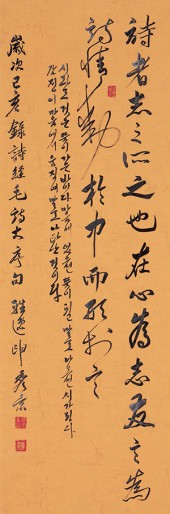 詩者志之所之也在心爲志發言爲
詩情動於中而形於言
시라는 것은 뜻이 가는 바이다 마음에 있으면 뜻이 되고 말로 나오면 시가 된다
감정이 마음에서 움직여 말로 나타난 것이다
歲次己亥錄詩經毛詩大序句